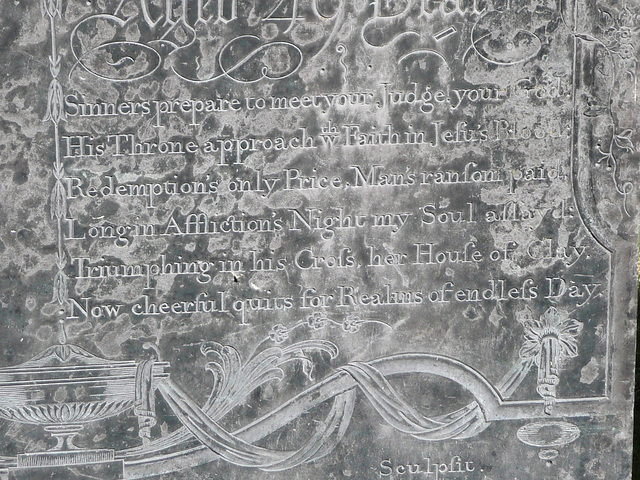 Aged 49 Years
Sinners prepare to meet your Judge, your God:
His Throne approach wth Faith in Jeſu's Blood;
Redemption's only Price, Man's ranſom paid,
Long in Affliction's Night my Soul aſſay'd:
Triumphing in his Croſs, her Houſe of Clay
Now cheerful quits for Realms of endleſs Day.
Sculpſit.